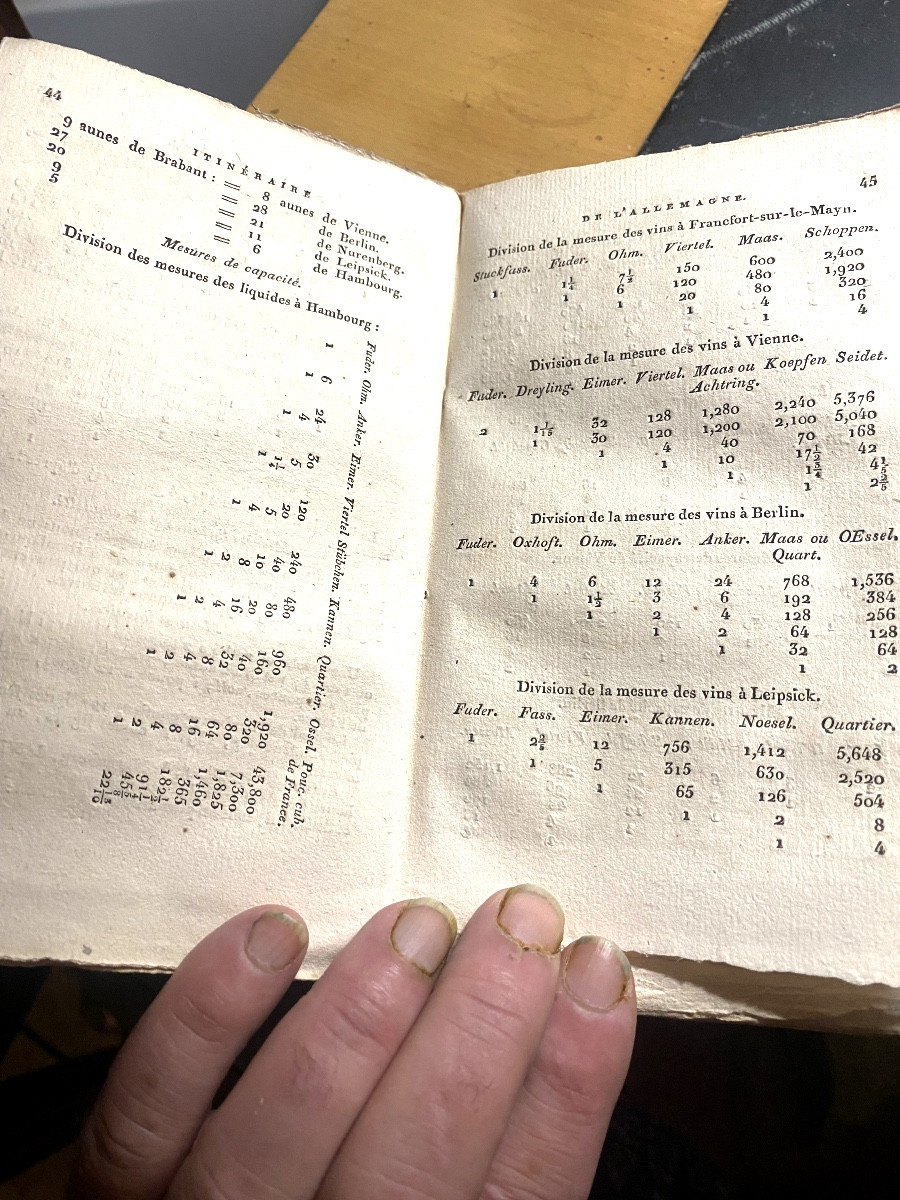 44
ITINÉRAIRE
9 aunes de Brabant : = 8 aunes de Vienne.
27 = 28 de Berlin.
20 = 21 de Nurenberg.
9 = 11 de Leipsick.
5 = 6 de Hambourg.
Mesures de capacité.
Division des mesures des liquides à Hambourg :
Fuder. Ohm. Anker. Eimer. Viertel Stübchen. Kannen. Quartier. Ossel. Pouc. cub. de France.
1 6 24 30 120 240 480 960 1,920 43,800
1 4 5 20 40 80 160 320 7,300
1 1¼ 5 10 20 40 80 1,825
1 4 8 16 32 64 1,460
1 2 4 8 16 365
1 2 4 8 182½
1 2 4 91¼
1 2 45⅝
1 22 13/16
45
DE L'ALLEMAGNE.
Division de la mesure des vins à Francfort-sur-le-Mayn.
Stuckfass. Fuder. Ohm. Viertel. Maas. Schoppen.
1 1¼ 7½ 150 600 2,400
1 6 120 480 1,920
1 20 80 320
1 4 16
1 4
Division de la mesure des vins à Vienne.
Fuder. Dreyling. Eimer. Viertel. Maas ou Koepfen Seidet.
Achtring.
2 1 1/15 32 128 1,280 2,240 5,376
1 30 120 1,200 2,100 5,040
1 4 40 70 168
1 10 17½ 42
1 1¾ 4⅕
1 2⅖
Division de la mesure des vins à Berlin.
Fuder. Oxhoft. Ohm. Eimer. Anker. Maas ou OEssel.
Quart.
1 4 6 12 24 768 1,536
1 1½ 3 6 192 384
1 2 4 128 256
1 2 64 128
1 32 64
1 2
Division de la mesure des vins à Leipsick.
Fuder. Fass. Eimer. Kannen. Noesel. Quartier.
1 2⅖ 12 756 1,412 5,648
1 5 315 630 2,520
1 65 126 504
1 2 8
1 4